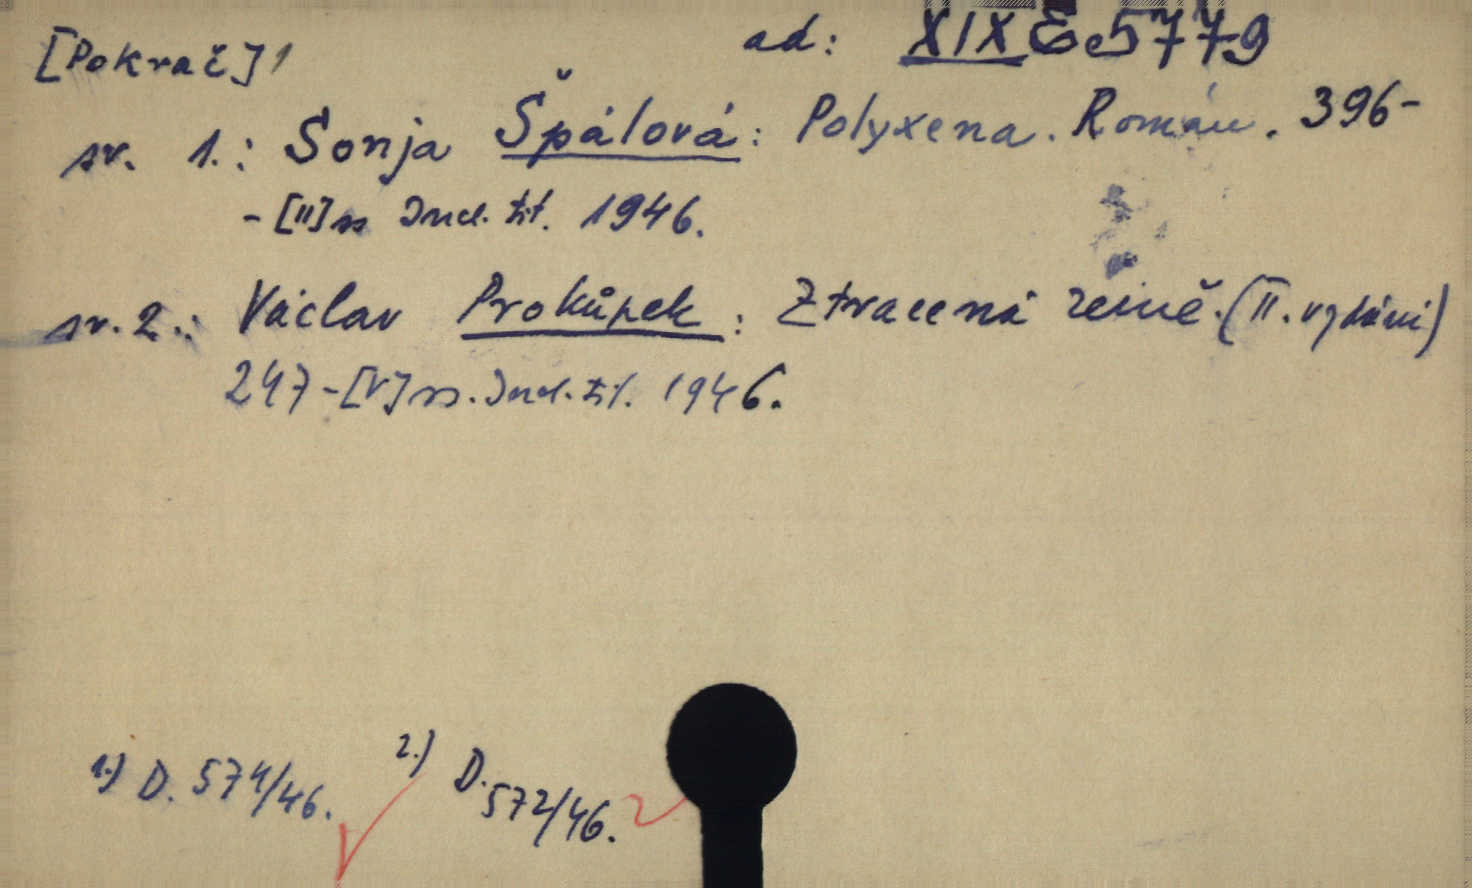 [Pokrač] 1
ad: XIX E 5779
sv. 1.: Sonja Špálová: Polyxena. Román. 396-
-[II] ss Incl. tit. 1946.
sv. 2.: Václav Prokůpek: Ztracená země. (II. vydání)
247-[V] ss. Incl. tit. 1946.
1.) D. 574/46.
2.) D. 572/46.